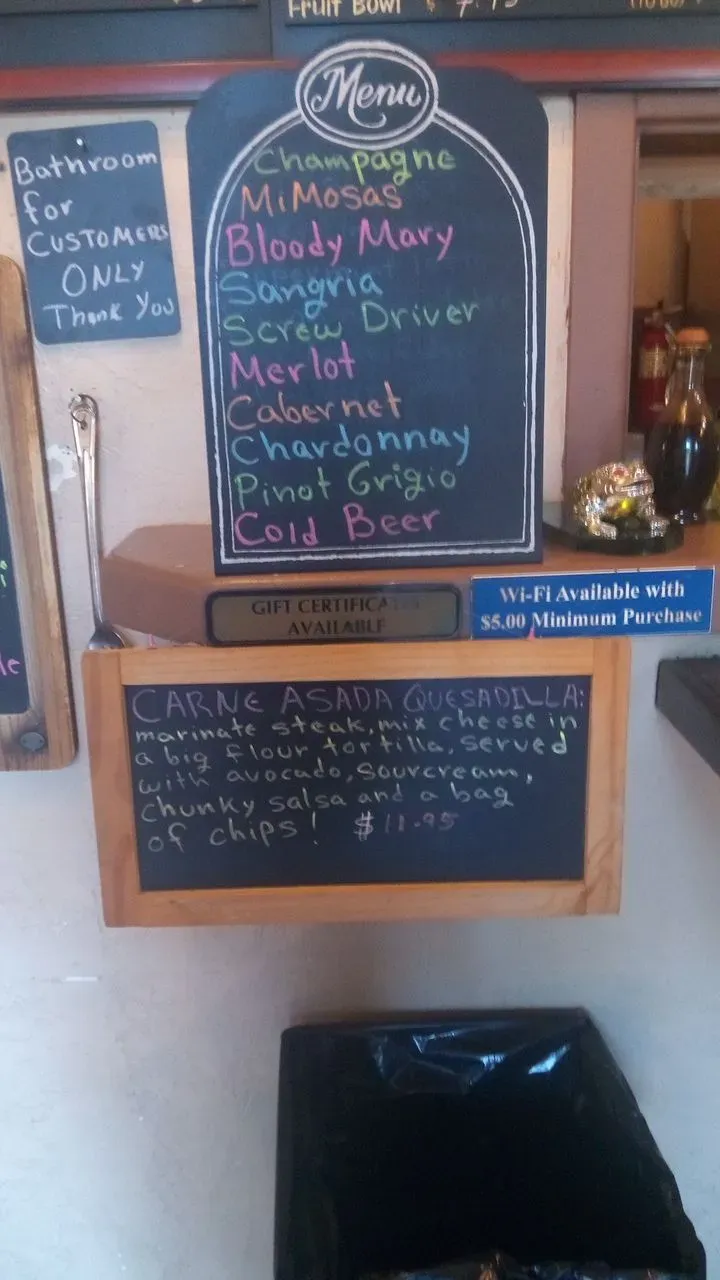 Fruit Bowl $ 7.95
Menu
Champagne
MiMosas
Bloody Mary
Sangria
Screw Driver
Merlot
Cabernet
Chardonnay
Pinot Grigio
Cold Beer
Bathroom
for
CUSTOMERS
ONLY
Thank You
GIFT CERTIFICATES
AVAILABLE
Wi-Fi Available with
$5.00 Minimum Purchase
CARNE ASADA QUESADILLA:
marinate steak, mix cheese in
a big flour tortilla, served
with avocado, sourcream,
chunky salsa and a bag
of chips! $11.95